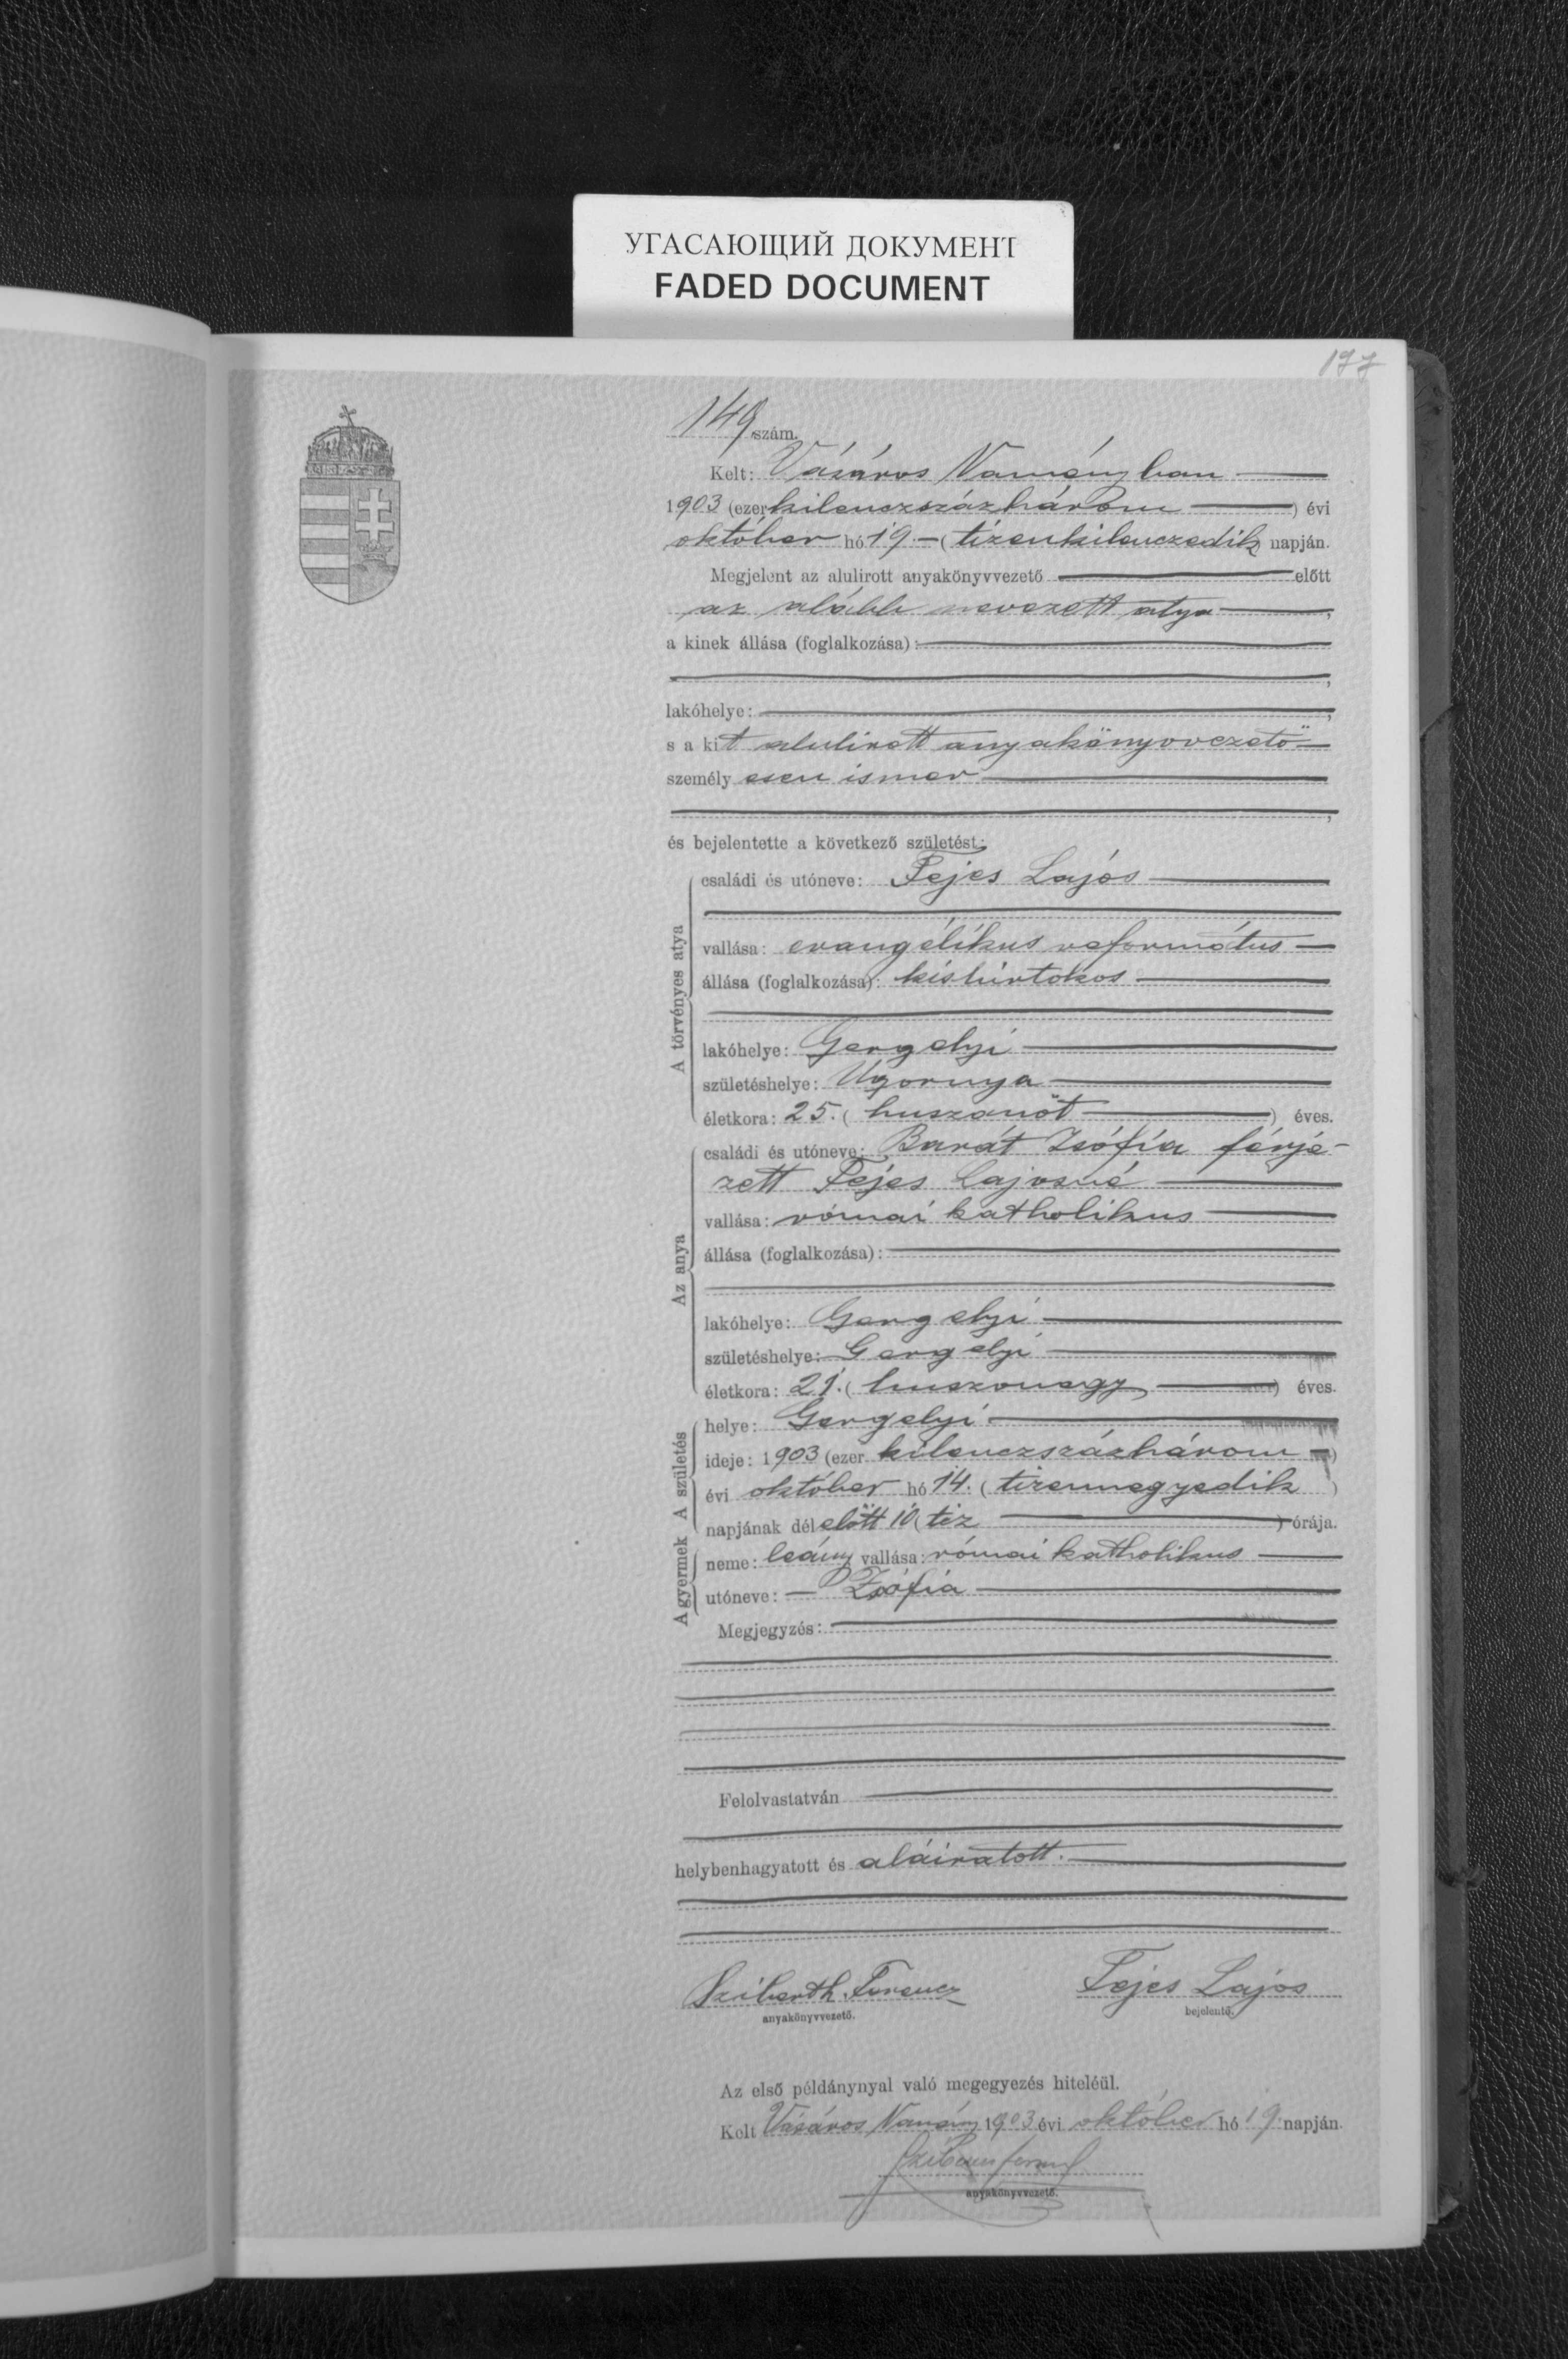 УГАСАЮЩИЙ ДОКУМЕНТ
FADED DOCUMENT
177
149 szám.
Kelt: Vásáros Naményban
1903 (ezer kilenczszázhárom ) évi
október hó 19. (tizenkilenczedik) napján.
Megjelent az alulirott anyakönyvvezető előtt
az alább nevezett atya,
a kinek állása (foglalkozása):
,
lakóhelye: ,
s a kit alulirott anyakönyvvezető
személyesen ismer
,
és bejelentette a következő születést:
A törvényes atya
családi és utóneve: Fejes Lajos
vallása: evangélikus református
állása (foglalkozása): kisbirtokos
lakóhelye: Gergelyi
születéshelye: Ugornya
életkora: 25. (huszonöt ) éves.
Az anya
családi és utóneve: Barát Zsófia férje-
zett Fejes Lajosné
vallása: római katholikus
állása (foglalkozása):
lakóhelye: Gergelyi
születéshelye: Gergelyi
életkora: 21. (huszonegy ) éves.
A születés
helye: Gergelyi
ideje: 1903 (ezer kilenczszázhárom )
évi október hó 14. (tizennegyedik )
napjának délelőtt 10 (tiz ) órája.
A gyermek
neme: leány vallása: római katholikus
utóneve: Zsófia
Megjegyzés:
Felolvastatván
helybenhagyatott és aláiratott.
Sziberth Ferencz Fejes Lajos
anyakönyvvezető. bejelentő.
Az első példánynyal való megegyezés hiteléül.
Kelt Vásáros Namény 1903 évi október hó 19 napján.
anyakönyvvezető.